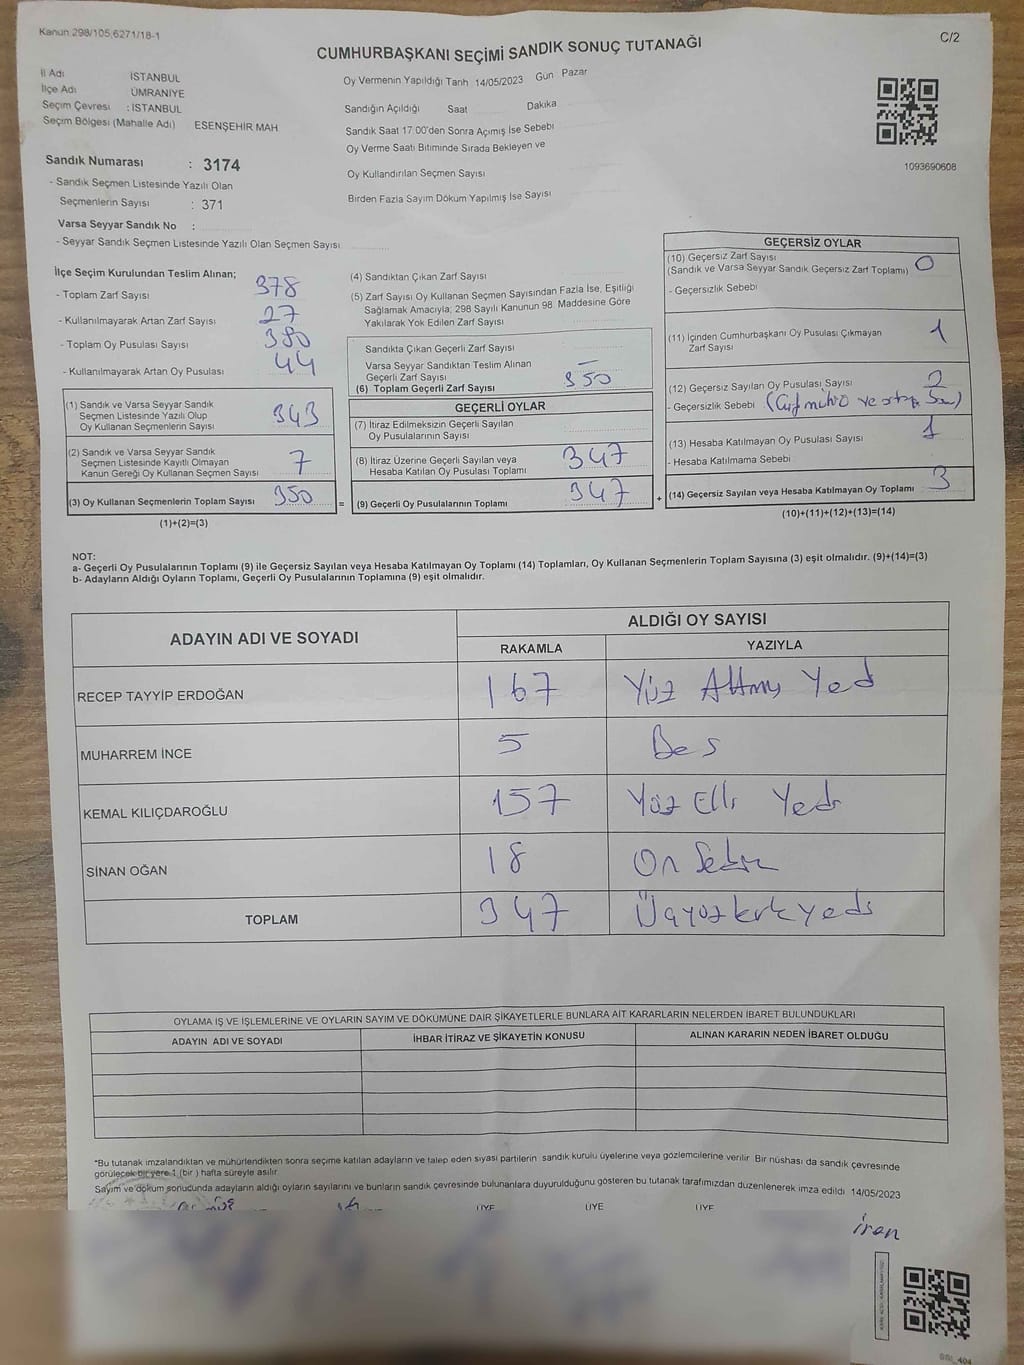 Kanun 298/105,6271/18-1
C/2
CUMHURBAŞKANI SEÇİMİ SANDIK SONUÇ TUTANAĞI
İl Adı İSTANBUL
İlçe Adı ÜMRANİYE
Seçim Çevresi : İSTANBUL
Seçim Bölgesi (Mahalle Adı) ESENŞEHİR MAH
Sandık Numarası : 3174
- Sandık Seçmen Listesinde Yazılı Olan
Seçmenlerin Sayısı : 371
Varsa Seyyar Sandık No :
- Seyyar Sandık Seçmen Listesinde Yazılı Olan Seçmen Sayısı
Oy Vermenin Yapıldığı Tarih 14/05/2023 Gün Pazar
Sandığın Açıldığı Saat Dakika
Sandık Saat 17.00'den Sonra Açılmış İse Sebebi
Oy Verme Saati Bitiminde Sırada Bekleyen ve
Oy Kullandırılan Seçmen Sayısı
Birden Fazla Sayım Döküm Yapılmış İse Sayısı
1093690608
İlçe Seçim Kurulundan Teslim Alınan;
- Toplam Zarf Sayısı 378
- Kullanılmayarak Artan Zarf Sayısı 27
- Toplam Oy Pusulası Sayısı 380
- Kullanılmayarak Artan Oy Pusulası 44
(1) Sandık ve Varsa Seyyar Sandık
Seçmen Listesinde Yazılı Olup
Oy Kullanan Seçmenlerin Sayısı 343
(2) Sandık ve Varsa Seyyar Sandık
Seçmen Listesinde Kayıtlı Olmayan
Kanun Gereği Oy Kullanan Seçmen Sayısı 7
(3) Oy Kullanan Seçmenlerin Toplam Sayısı 350
(1)+(2)=(3)
=
(4) Sandıktan Çıkan Zarf Sayısı
(5) Zarf Sayısı Oy Kullanan Seçmen Sayısından Fazla İse, Eşitliği
Sağlamak Amacıyla; 298 Sayılı Kanunun 98. Maddesine Göre
Yakılarak Yok Edilen Zarf Sayısı
Sandıkta Çıkan Geçerli Zarf Sayısı
Varsa Seyyar Sandıktan Teslim Alınan
Geçerli Zarf Sayısı –
(6) Toplam Geçerli Zarf Sayısı 350
GEÇERLİ OYLAR
(7) İtiraz Edilmeksizin Geçerli Sayılan
Oy Pusulalarının Sayısı
(8) İtiraz Üzerine Geçerli Sayılan veya
Hesaba Katılan Oy Pusulası Toplamı 347
(9) Geçerli Oy Pusulalarının Toplamı 347
+
GEÇERSİZ OYLAR
(10) Geçersiz Zarf Sayısı
(Sandık ve Varsa Seyyar Sandık Geçersiz Zarf Toplamı) 0
- Geçersizlik Sebebi
(11) İçinden Cumhurbaşkanı Oy Pusulası Çıkmayan
Zarf Sayısı 1
(12) Geçersiz Sayılan Oy Pusulası Sayısı 2
- Geçersizlik Sebebi
(13) Hesaba Katılmayan Oy Pusulası Sayısı 1
- Hesaba Katılmama Sebebi
(14) Geçersiz Sayılan veya Hesaba Katılmayan Oy Toplamı 3
(10)+(11)+(12)+(13)=(14)
NOT:
a- Geçerli Oy Pusulalarının Toplamı (9) ile Geçersiz Sayılan veya Hesaba Katılmayan Oy Toplamı (14) Toplamları, Oy Kullanan Seçmenlerin Toplam Sayısına (3) eşit olmalıdır. (9)+(14)=(3)
b- Adayların Aldığı Oyların Toplamı, Geçerli Oy Pusulalarının Toplamına (9) eşit olmalıdır.
ADAYIN ADI VE SOYADI
ALDIĞI OY SAYISI
RAKAMLA YAZIYLA
RECEP TAYYİP ERDOĞAN 167 Yüz Altmış Yedi
MUHARREM İNCE 5 Beş
KEMAL KILIÇDAROĞLU 157 Yüz Elli Yedi
SİNAN OĞAN 18 On Sekiz
TOPLAM 347 Üçyüzkırkyedi
OYLAMA İŞ VE İŞLEMLERİNE VE OYLARIN SAYIM VE DÖKÜMÜNE DAİR ŞİKAYETLERLE BUNLARA AİT KARARLARIN NELERDEN İBARET BULUNDUKLARI
ADAYIN ADI VE SOYADI İHBAR İTİRAZ VE ŞİKAYETİN KONUSU ALINAN KARARIN NEDEN İBARET OLDUĞU
*Bu tutanak imzalandıktan ve mühürlendikten sonra seçime katılan adayların ve talep eden siyasi partilerin sandık kurulu üyelerine veya gözlemcilerine verilir. Bir nüshası da sandık çevresinde
görülecek bir yere 1 (bir) hafta süreyle asılır.
Sayım ve döküm sonucunda adayların aldığı oyların sayılarını ve bunların sandık çevresinde bulunanlara duyurulduğunu gösteren bu tutanak tarafımızdan düzenlenerek imza edildi 14/05/2023
ÜYE ÜYE ÜYE
iren